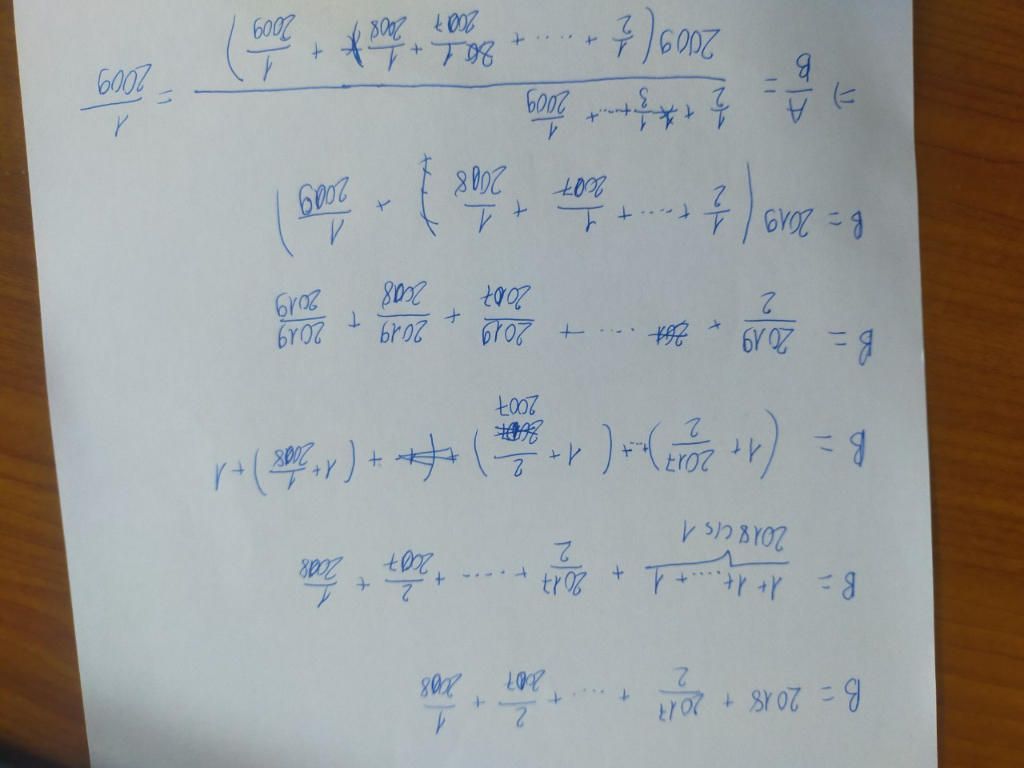 B = 2018 + 2017/2 + .... + 2/2007 + 1/2008
B = 1 + 1 + .... + 1 + 2017/2 + ..... + 2/2007 + 1/2008
2018 c/s 1
B = (1 + 2017/2) + .. + (1 + 2/2007) + (1 + 1/2008) + 1
B = 2019/2 + .... + 2019/2007 + 2019/2008 + 2019/2019
B = 2019 (1/2 + .... + 1/2007 + 1/2008 + 1/2009)
=> A/B = (1/2 + 1/3 + ... + 1/2009) / 2009(1/2 + .... + 1/2007 + 1/2008 + 1/2009) = 1/2009